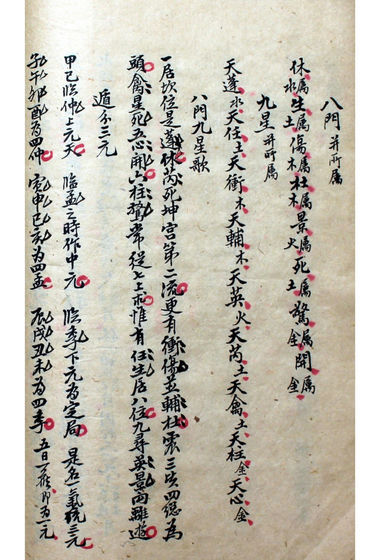 八門并所属
休属水生属土傷属木杜属木景属火死属土驚属金開属金
九星并所属
天蓬水天任土天衝木天輔木天英火天芮土天禽土天柱金天心金
八門九星歌
一居坎位是蓬休芮死坤宮第二流更有衝傷並輔杜震三巽四総為
頭禽星死五心開六柱驚常從七上求惟有任生居八位九尋英景向離遊
遁分三元
甲己臨仲上元天 臨孟之時作中元 臨季下元為定局 是名氣統三元
子午卯酉為四仲 寅申巳亥為四孟 辰戌丑未為四季 五日一候即為一元